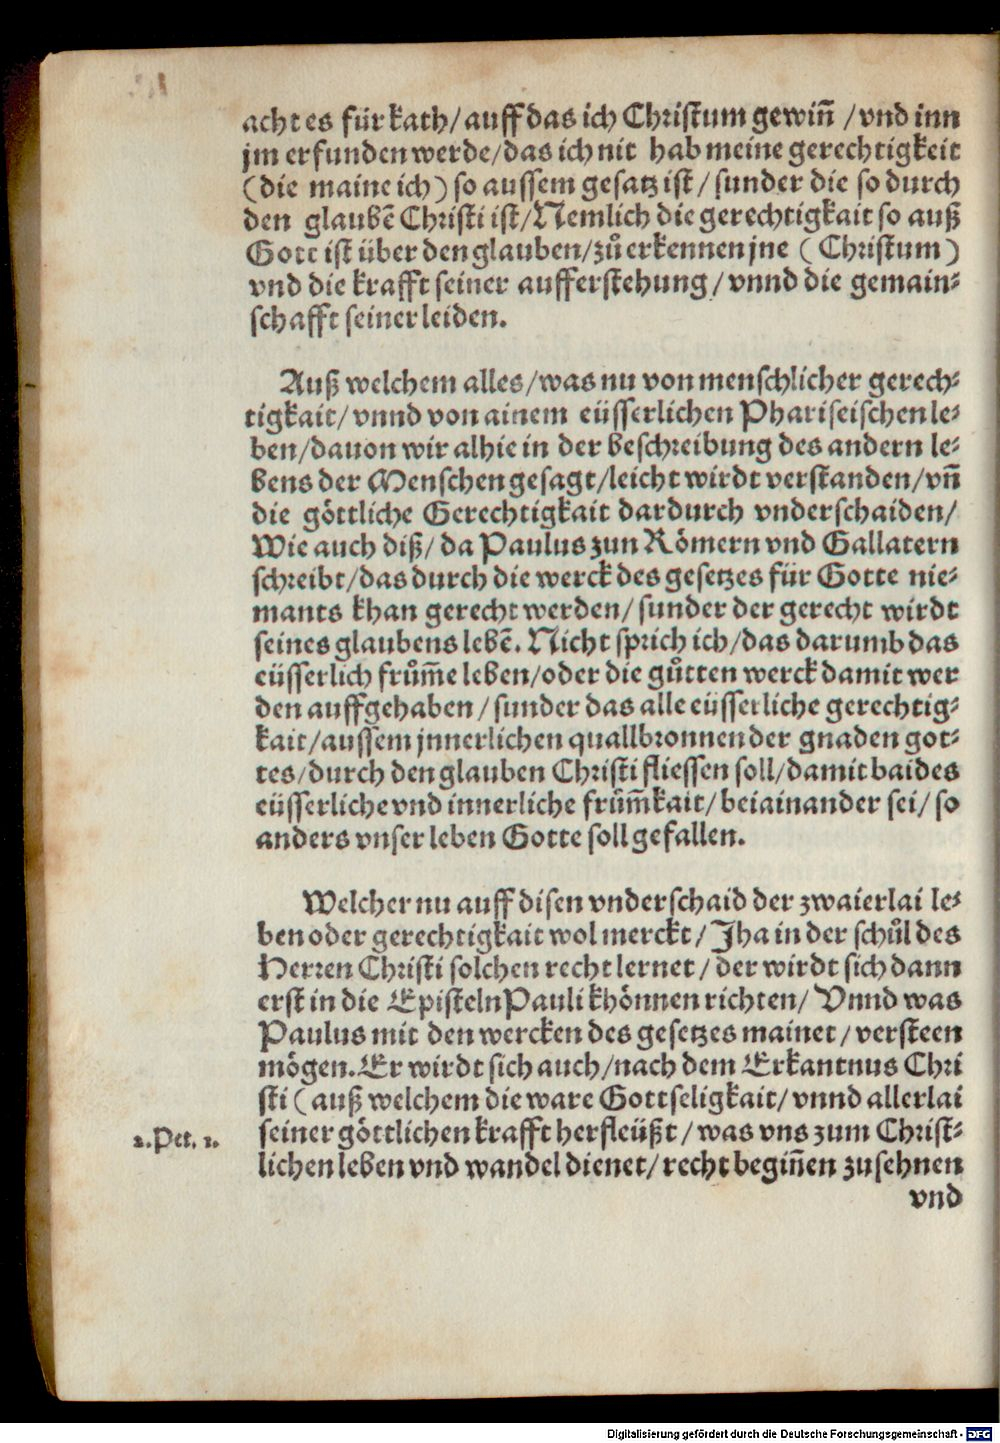 acht es für kath/ auff das ich Christum gewiñ / vnd inn
jm erfunden werde/ das ich nit hab meine gerechtigkeit
(die maine ich) so aussem gesatz ist/ sunder die so durch
den glaubẽ Christi ist/ Nemlich die gerechtigkait so auß
Gott ist über den glauben/ zů erkennen jne (Christum)
vnd die krafft seiner aufferstehung/ vnnd die gemain⸗
schafft seiner leiden.
Auß welchem alles/ was nu von menschlicher gerech⸗
tigkait/ vnnd von ainem eüsserlichen Phariseischen le⸗
ben/ dauon wir alhie in der beschreibung des andern le⸗
bens der Menschen gesagt/ leicht wirdt verstanden/ vñ
die göttliche Gerechtigkait dardurch vnderschaiden/
Wie auch diß/ da Paulus zun Römern vnd Gallatern
schreibt/ das durch die werck des gesetzes für Gotte nie⸗
mants khan gerecht werden/ sunder der gerecht wirdt
seines glaubens lebẽ. Nicht sprich ich/ das darumb das
eüsserlich frům̃e leben/ oder die gůtten werck damit wer
den auffgehaben / sunder das alle eüsserliche gerechtig⸗
kait/ aussem jnnerlichen quallbronnen der gnaden got⸗
tes/ durch den glauben Christi fliessen soll/ damit baides
eüsserliche vnd innerliche frům̃kait/ beiainander sei/ so
anders vnser leben Gotte soll gefallen.
Welcher nu auff disen vnderschaid der zwaierlai le⸗
ben oder gerechtigkait wol merckt/ Jha in der schůl des
Herren Christi solchen recht lernet / der wirdt sich dann
erst in die Episteln Pauli khönnen richten/ Vnnd was
Paulus mit den wercken des gesetzes mainet/ versteen
mögen. Er wirdt sich auch/ nach dem Erkantnus Chri
sti (auß welchem die ware Gottseligkait/ vnnd allerlai
2. Pet. 1. seiner göttlichen krafft herfleüßt/ was vns zum Christ⸗
lichen leben vnd wandel dienet/ recht begiñen zusehnen
vnd
Digitalisierung gefördert durch die Deutsche Forschungsgemeinschaft - DFG